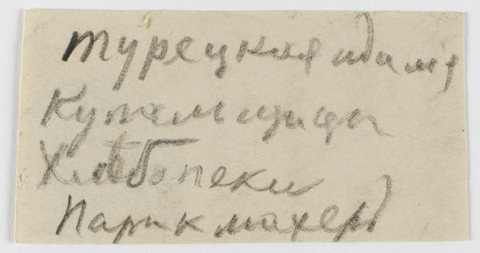 Турецкая дама
Купальщицы
Хлебопеки
Парикмахеръ